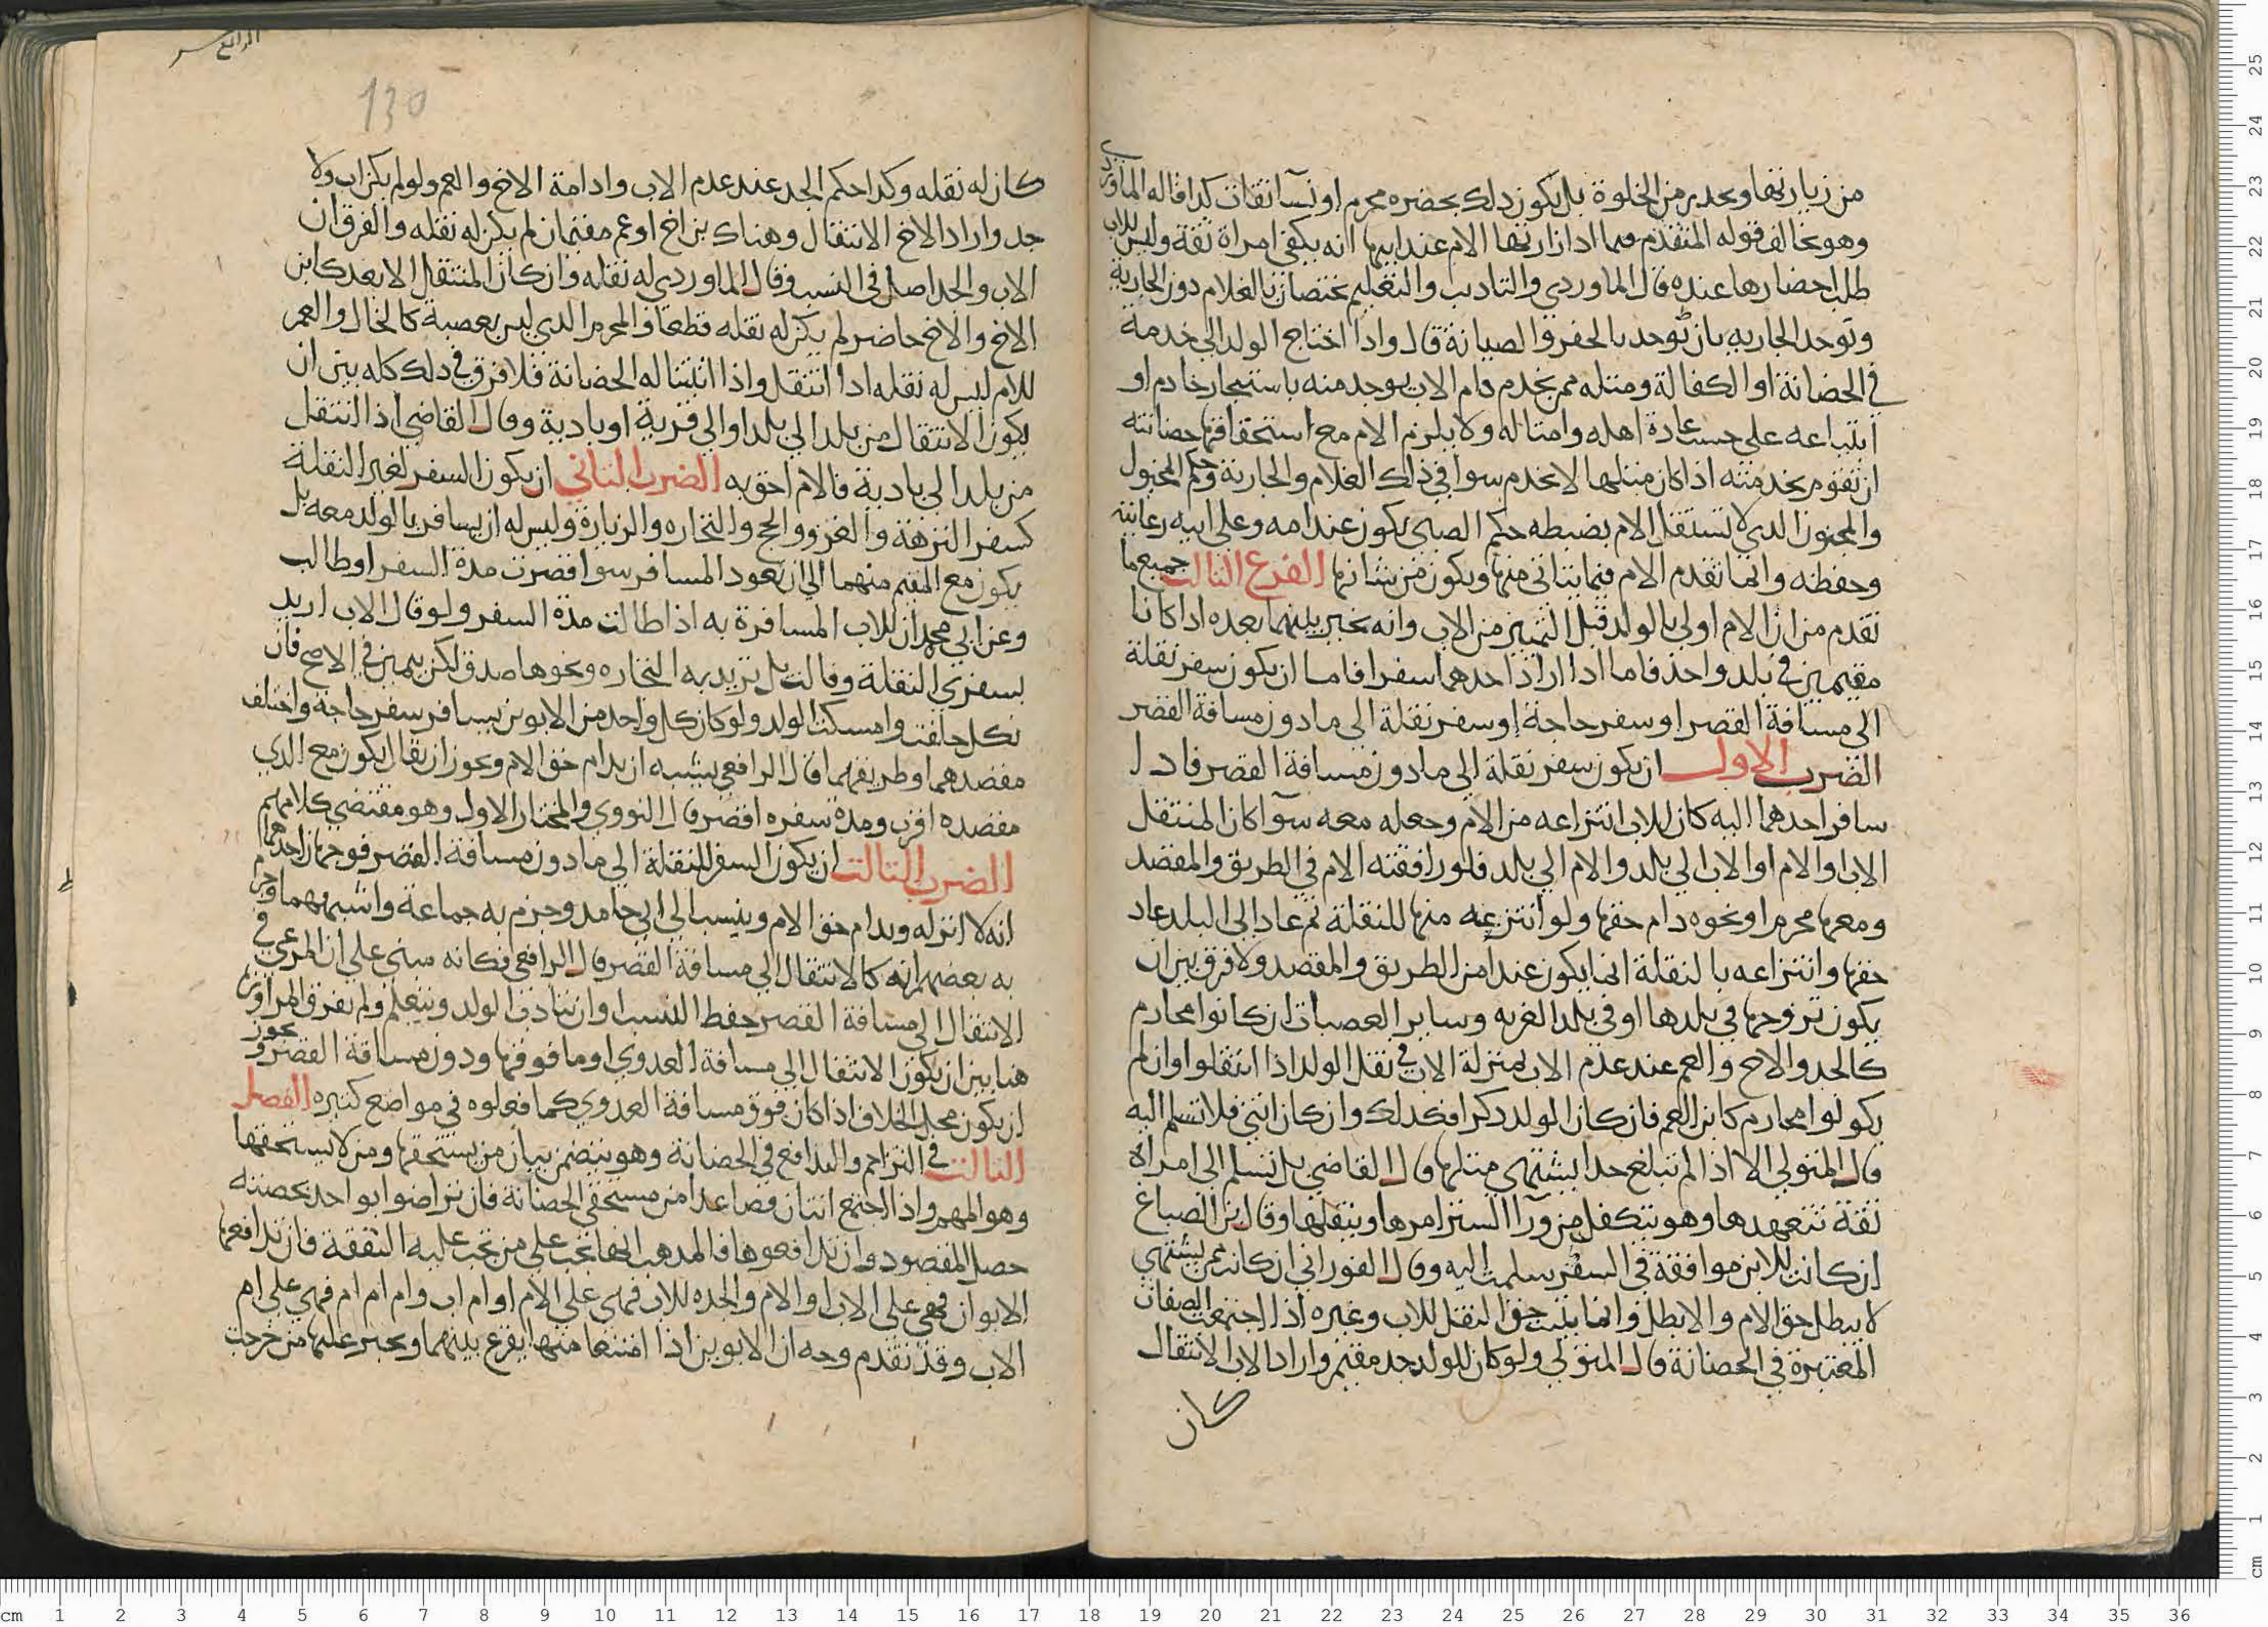 من زيارتها ويحدبر من الخلوة بل يكون ذلك بحضره محرم او نسآ ثقات كذا قاله الماوردي
وهو يخالف قوله المتقدم فيما اذا زارتها الام عند ابيها انه يكفي امراة ثقة وليس للاب
طلب احضارها عنده قال الماوردي والتاديب والتعليم يختصان بالغلام دون الجارية
وتوخذ الجاريه بان توخذ بالخفر والصيانة قال واذا احتاج الولد الى خدمة
في الحضانة او الكفالة ومثله ممن يخدم قام الاب بوجد منه باستيجار خادم او
ابتياعه على حسب عادة اهله وامثاله ولا يلزم الام مع استحقاقها حضانته
ان تقوم بخدمته اذا كان مثلها لا يخدم سوا في ذلك الغلام والجارية وحكم المخبول
والمجنون الذي لا تستقل الام بضبطه حكم الصبي يكون عند امه وعلى ابيه رعايته
وحفظه وانما تقدم الام فيما يتاتى منها ويكون من شانها الفرع الثالث جميع ما
تقدم من ان الام اولى بالولد قبل التمييز من الاب وانه يخير بينهما بعده اذا كانا
مقيمين في بلد واحد فاما اذا اراد احدهما سفرا فاما ان يكون سفر نقلة
الى مسافة القصر او سفر حاجة او سفر نقلة الى ما دون مسافة القصر
الضرب الاول ان يكون سفر نقلة الى ما دون مسافة القصر فاذا
سافر احدهما اليه كان للاب انتزاعه من الام وجعله معه سوآ كان المنتقل
الاب او الام او الاب الى بلد والام الى بلد فلو رافقته الام في الطريق والمقصد
ومعها محرم او نحوه دام حقها ولو انتزعه منها للنقلة ثم عاد الى البلد عاد
حقها وانتزاعه بالنقلة انما يكون عند امن الطريق والمقصد ولا فرق بين ان
يكون تزوجها في بلدها او في بلد الغربه وساير العصبات ان كانوا محارم
كالجد والاخ والعم عند عدم الاب بمنزلة الاب في نقل الولد اذا انتقلوا وان لم
يكونوا محارم كابن العم فان كان الولد ذكرا فكذلك وان كان انثى فلا تسلم اليه
قال المتولي الا اذا لم تبلغ حدا يشتهى مثلها وقال القاضي بل تسلم الى امراة
ثقة تتعهدها وهو يتكفل من ورآ الستر امرها وينقلها وقال ابن الصباغ
ان كانت للابن موافقة في السفر سلمت اليه وقال الفوراني ان كانت ممن يشتهي
لا يبطل حق الام والا بطل وانما يثبت حق النقل للاب وغيره اذا اجتمعت الصفات
المعتبرة في الحضانة قال المتولي ولو كان للولد جد مقيم واراد الاب الانتقال
كان
الرابع
130
كان له نقله وكذا حكم الجد عند عدم الاب وادامة الاخ والعم ولو لم يكن اب ولا
جد واراد الاخ الانتقال وهناك بن اخ او عم مقيمان لم يكن له نقله والفرق ان
الاب والجد اصل في النسب وقال الماوردي له نقله وان كان المنتقل الابعد كابن
الاخ والاخ حاضر لم يكن له نقله قطعا والمحرم الذي ليس بعصبة كالخال والعم
للام ليس له نقله اذا انتقل واذا اثبتنا له الحضانة فلا فرق في ذلك كله بين ان
يكون الانتقال من بلد الى بلد او الى قرية او بادية وقال القاضي اذا انتقل
من بلد الى بادية فالام احق به الضرب الثاني ان يكون السفر لغير النقلة
كسفر النزهة والغزو والحج والتجاره والزيارة وليس له ان يسافر بالولد معه بل
يكون مع المقيم منهما الى ان يعود المسافر سوا قصرت مدة السفر او طالت
وعن ابي محمد ان للاب المسافرة به اذا طالت مدة السفر ولو قال الاب اريد
بسفري النقلة وقالت بل تريد به التجاره ونحوها صدق لكن بيمين في الاصح فان
نكل حلفت وامسكت الولد ولو كان كل واحد من الابوين يسافر سفر حاجة واختلف
مقصدهما وطريقهما قال الرافعي يشبه ان يدام حق الام ويجوز ان يقال يكون مع الذي
مقصده اقرب ومدة سفره اقصر قال النووي والمختار الاول وهو مقتضى كلامهم
الضرب الثالث ان يكون السفر للنقلة الى ما دون مسافة القصر فوجهان احدهما
انه لا اثر له ويدام حق الام وينسب الى ابي حامد وجزم به جماعة واشبههما وجزم
به بعضهم انه كالانتقال الى مسافة القصر قال الرافعي فكانه مبني على ان المرعي في
الانتقال الى مسافة القصر حفظ النسب او ان يتادب الولد ويتعلم ولم يفرق المراوزة
هنا بين ان يكون الانتقال الى مسافة العدوي او ما فوقها ودون مسافة القصر ويجوز
ان يكون محل الخلاف اذا كان فوق مسافة العدوي كما فعلوه في مواضع كثيره الفصل
الثالث في التزاحم والتدافع في الحضانة وهو يتضمن بيان من يستحقها ومن لا يستحقها
وهو المهم واذا اجتمع اثنان فصاعدا من مستحقي الحضانة فان تراضوا بواحد يحضنه
حصل المقصود وان تدافعوها فالمذهب انها تجب على من تجب عليه النفقة فان تدافعها
الابوان فهي على الاب او الام والجده للاب فهي على الام او ام اب وام ام ام فهي على ام
الاب وقد تقدم وجه ان الابوين اذا امتنعا منها يقرع بينهما ويجبر عليها من خرجت